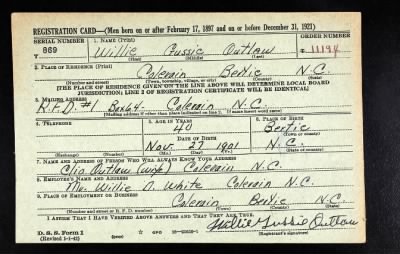 REGISTRATION CARD—(Men born on or after February 17, 1897 and on or before December 31, 1921)
SERIAL NUMBER 1. NAME (Print) ORDER NUMBER
869 Willie Gussie Outlaw 11194
(First) (Middle) (Last)
2. PLACE OF RESIDENCE (Print)
Colerain Bertie N.C.
(Number and street) (Town, township, village, or city) (County) (State)
[THE PLACE OF RESIDENCE GIVEN ON THE LINE ABOVE WILL DETERMINE LOCAL BOARD
JURISDICTION; LINE 2 OF REGISTRATION CERTIFICATE WILL BE IDENTICAL]
3. MAILING ADDRESS
R.F.D #1 Box 64. Colerain N.C.
[Mailing address if other than place indicated on line 2. If same insert word same]
4. TELEPHONE 5. AGE IN YEARS 6. PLACE OF BIRTH
40 Bertie
DATE OF BIRTH (Town or county)
Nov. 27 1901 N.C.
(Exchange) (Number) (Mo.) (Day) (Yr.) (State or country)
7. NAME AND ADDRESS OF PERSON WHO WILL ALWAYS KNOW YOUR ADDRESS
Clio Outlaw (wife) Colerain N.C.
8. EMPLOYER'S NAME AND ADDRESS
Mr. Willie D. White Colerain N.C.
9. PLACE OF EMPLOYMENT OR BUSINESS
Colerain Bertie N.C.
(Number and street or R. F. D. number) (Town) (County) (State)
I AFFIRM THAT I HAVE VERIFIED ABOVE ANSWERS AND THAT THEY ARE TRUE.
D. S. S. Form 1 GPO Willie Gussie Outlaw
(Revised 1-1-42) (over) (Registrant's signature)